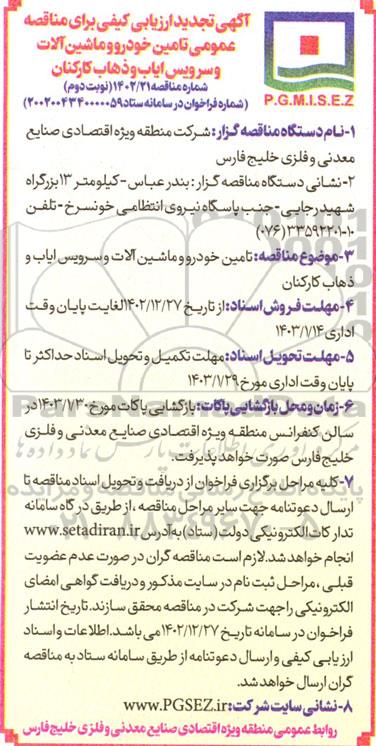 آگهی تجدید ارزیابی کیفی برای مناقصه
عمومی تامین خودرو و ماشین آلات
و سرویس ایاب و ذهاب کارکنان
شماره مناقصه ۱۴۰۲/۲۱ (نوبت دوم)
(شماره فراخوان در سامانه ستاد ۲۰۰۲۰۰۴۳۴۰۰۰۰۰۵۹)
P.G.M.I.S.E.Z
۱-نام دستگاه مناقصه گزار: شرکت منطقه ویژه اقتصادی صنایع
معدنی و فلزی خلیج فارس
۲-نشانی دستگاه مناقصه گزار: بندر عباس – کیلومتر ۱۳ بزرگراه
شهید رجایی – جنب پاسگاه نیروی انتظامی خونسرخ – تلفن
۱۰-۳۳۵۹۳۲۰۱ (۰۷۶)
۳-موضوع مناقصه: تامین خودرو و ماشین آلات و سرویس ایاب و
ذهاب کارکنان
۴-مهلت فروش اسناد: از تاریخ ۱۴۰۲/۱۲/۲۷ لغایت پایان وقت
اداری ۱۴۰۳/۱/۱۴
۵-مهلت تحویل اسناد: مهلت تکمیل و تحویل اسناد حداکثر تا
پایان وقت اداری مورخ ۱۴۰۳/۱/۲۹
۶-زمان و محل بازگشایی پاکات: بازگشایی پاکات مورخ ۱۴۰۳/۱/۳۰ در
سالن کنفرانس منطقه ویژه اقتصادی صنایع معدنی و فلزی
خلیج فارس صورت خواهد پذیرفت.
۷-کلیه مراحل برگزاری فراخوان از دریافت و تحویل اسناد مناقصه تا
ارسال دعوتنامه جهت سایر مراحل مناقصه، از طریق درگاه سامانه
تدارکات الکترونیکی دولت (ستاد) به آدرس www.setadiran.ir
انجام خواهد شد. لازم است مناقصه گران در صورت عدم عضویت
قبلی، مراحل ثبت نام در سایت مذکور و دریافت گواهی امضای
الکترونیکی را جهت شرکت در مناقصه محقق سازند. تاریخ انتشار
فراخوان در سامانه تاریخ ۱۴۰۲/۱۲/۲۷ می باشد. اطلاعات و اسناد
ارزیابی کیفی و ارسال دعوتنامه از طریق سامانه ستاد به مناقصه
گران ارسال خواهد شد.
۸-نشانی سایت شرکت: www.PGSEZ.ir
روابط عمومی منطقه ویژه اقتصادی صنایع معدنی و فلزی خلیج فارس